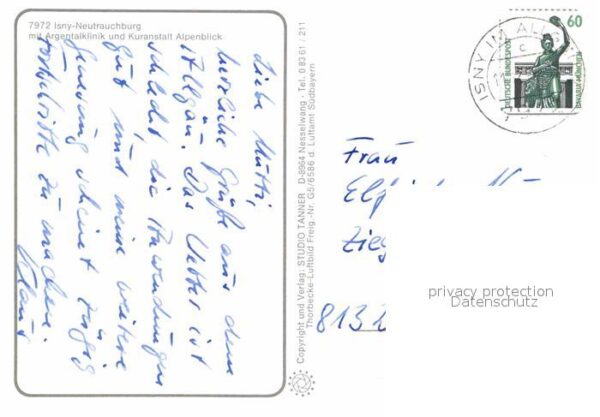 7972 Isny-Neutrauchburg
mit Argentalklinik und Kuranstalt Alpenblick
Liebe Mutti,
herzliche Grüße aus dem
Allgäu. Das Wetter ist
schlecht, die Anwendungen
gut und meine weitere
Genesung scheint zügig
Fortschritte zu machen.
Klaus
Copyright und Verlag: STUDIO TANNER D-8964 Nesselwang · Tel. 0 83 61 / 211
Thorbecke-Luftbild Freig.-Nr. G5/6586 d. Luftamt Südbayern
60
DEUTSCHE BUNDESPOST
BAVARIA MÜNCHEN
ISNY IM ALL
c
Frau
Zieg
8132
privacy protection
Datenschutz